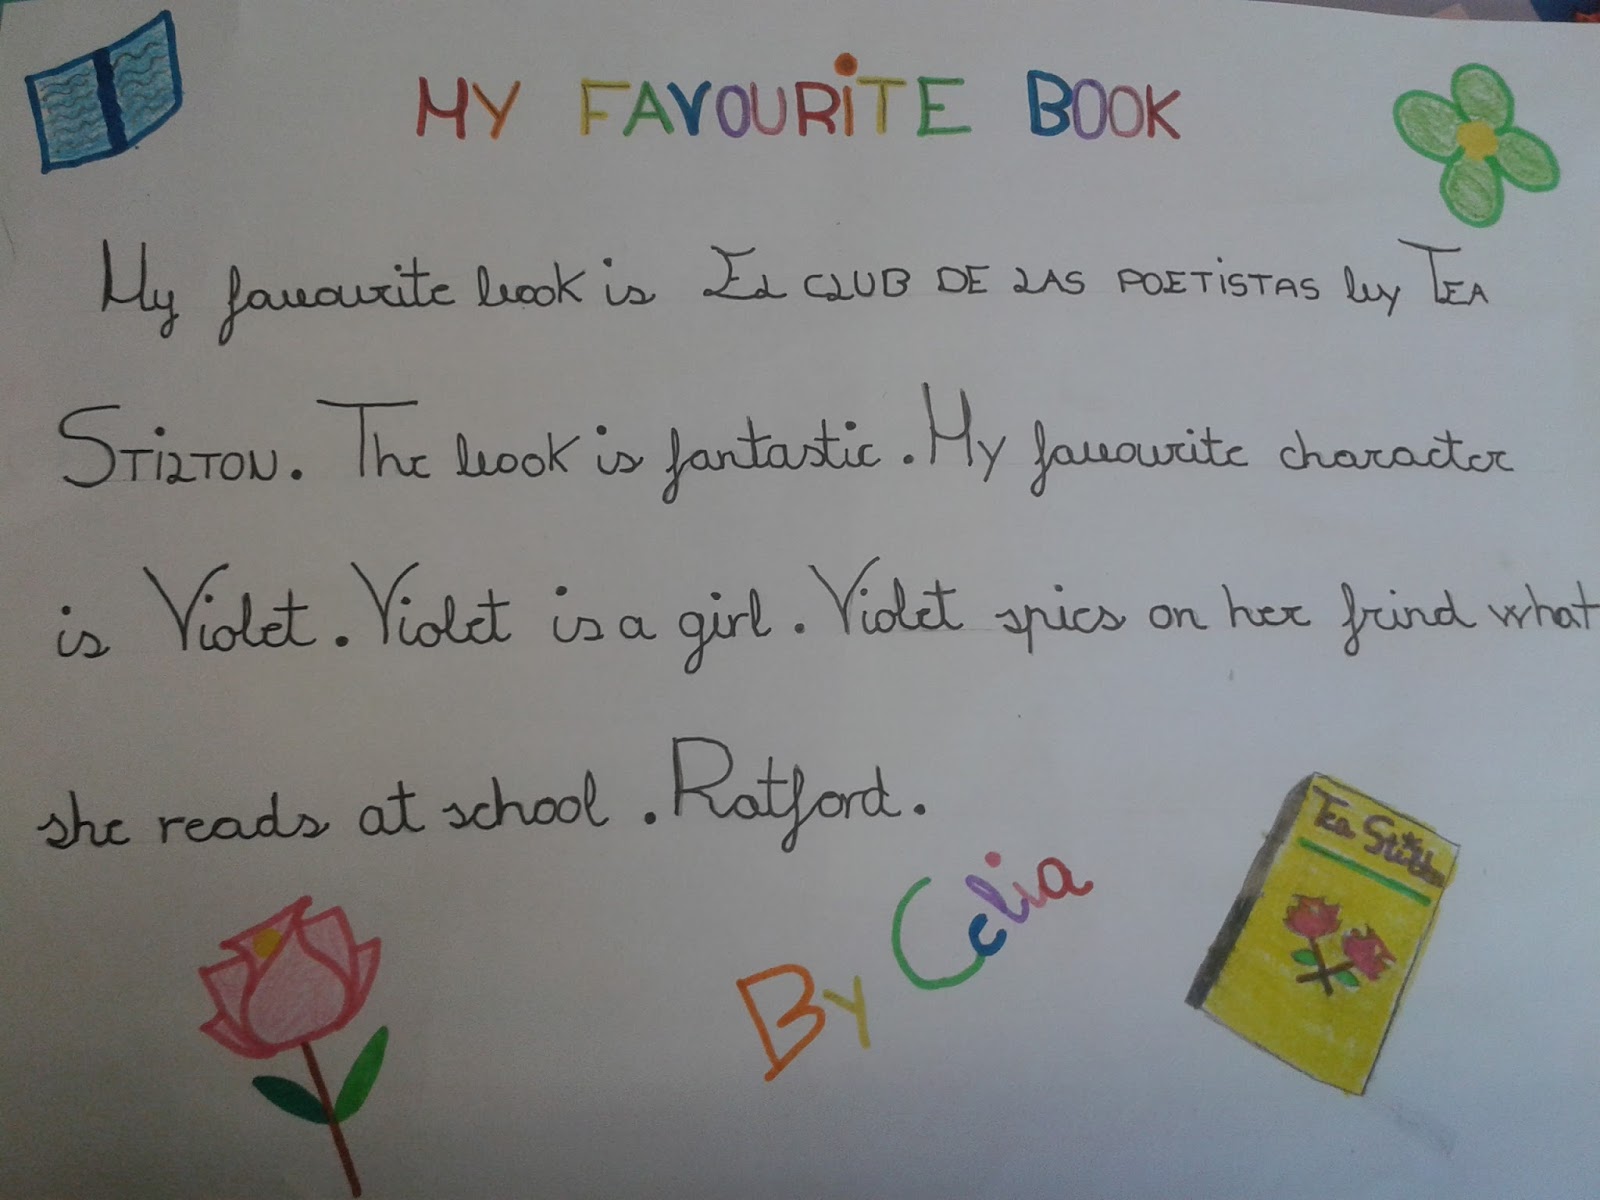 MY FAVOURiTE BOOK
My favourite book is EL CLUB DE LAS POETISTAS by TEA
STILTON. The book is fantastic. My favourite character
is Violet. Violet is a girl. Violet spies on her frind what
she reads at school. Ratford.
By Celia
Tea Stilton